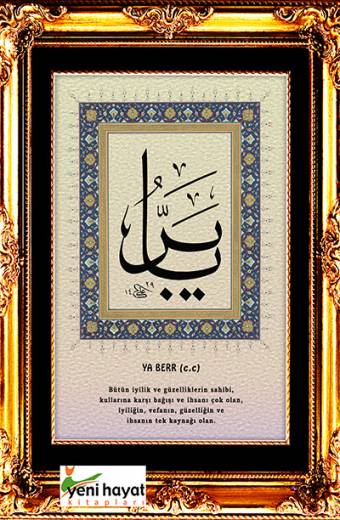 يا برُّ
١٤٢٩
YA BERR (c.c)
Bütün iyilik ve güzelliklerin sahibi,
kullarına karşı bağışı ve ihsanı çok olan,
iyiliğin, vefanın, güzelliğin ve
ihsanın tek kaynağı olan.
yeni hayat
kitapları